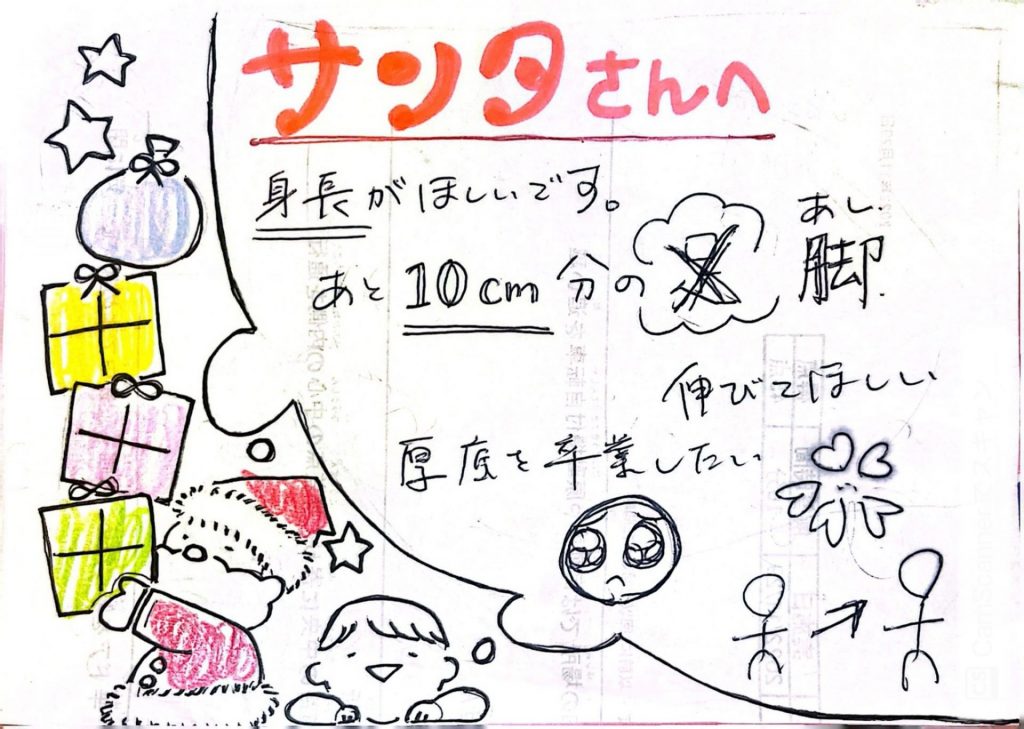 サンタさんへ
身長がほしいです。
あと10cm分の
あし
脚
伸びてほしい
厚底を卒業したい